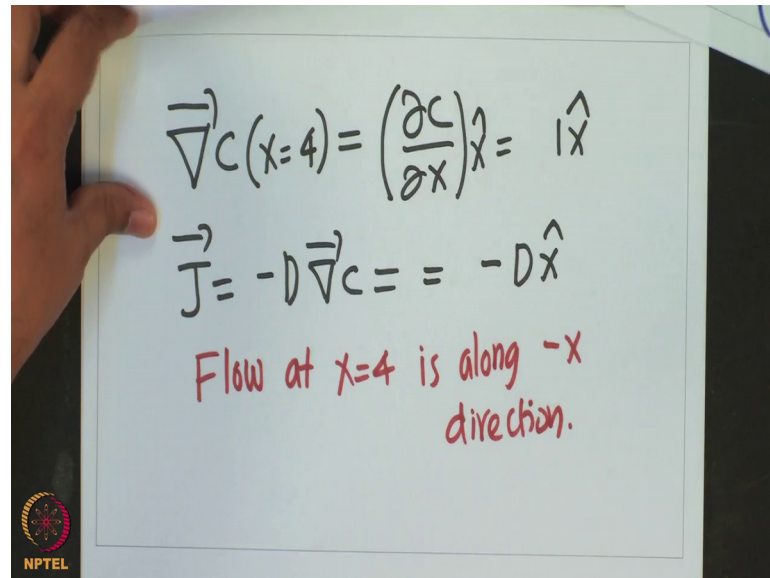 ∇⃗C(x=4) = (∂C/∂x)x̂ = 1x̂
J⃗ = -D∇⃗C = = -Dx̂
Flow at x=4 is along -x
direction.
NPTEL